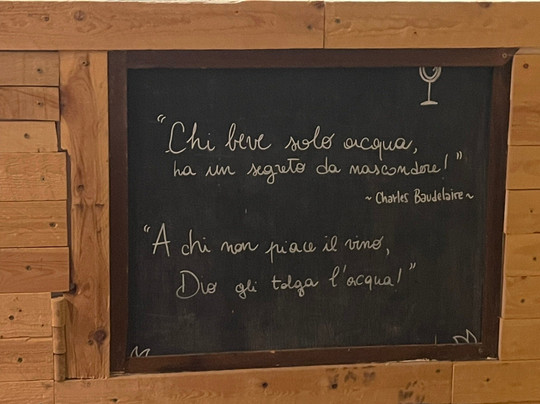 "Chi beve solo acqua,
ha un segreto da nascondere!"
~Charles Baudelaire~
"A chi non piace il vino,
Dio gli tolga l'acqua!"